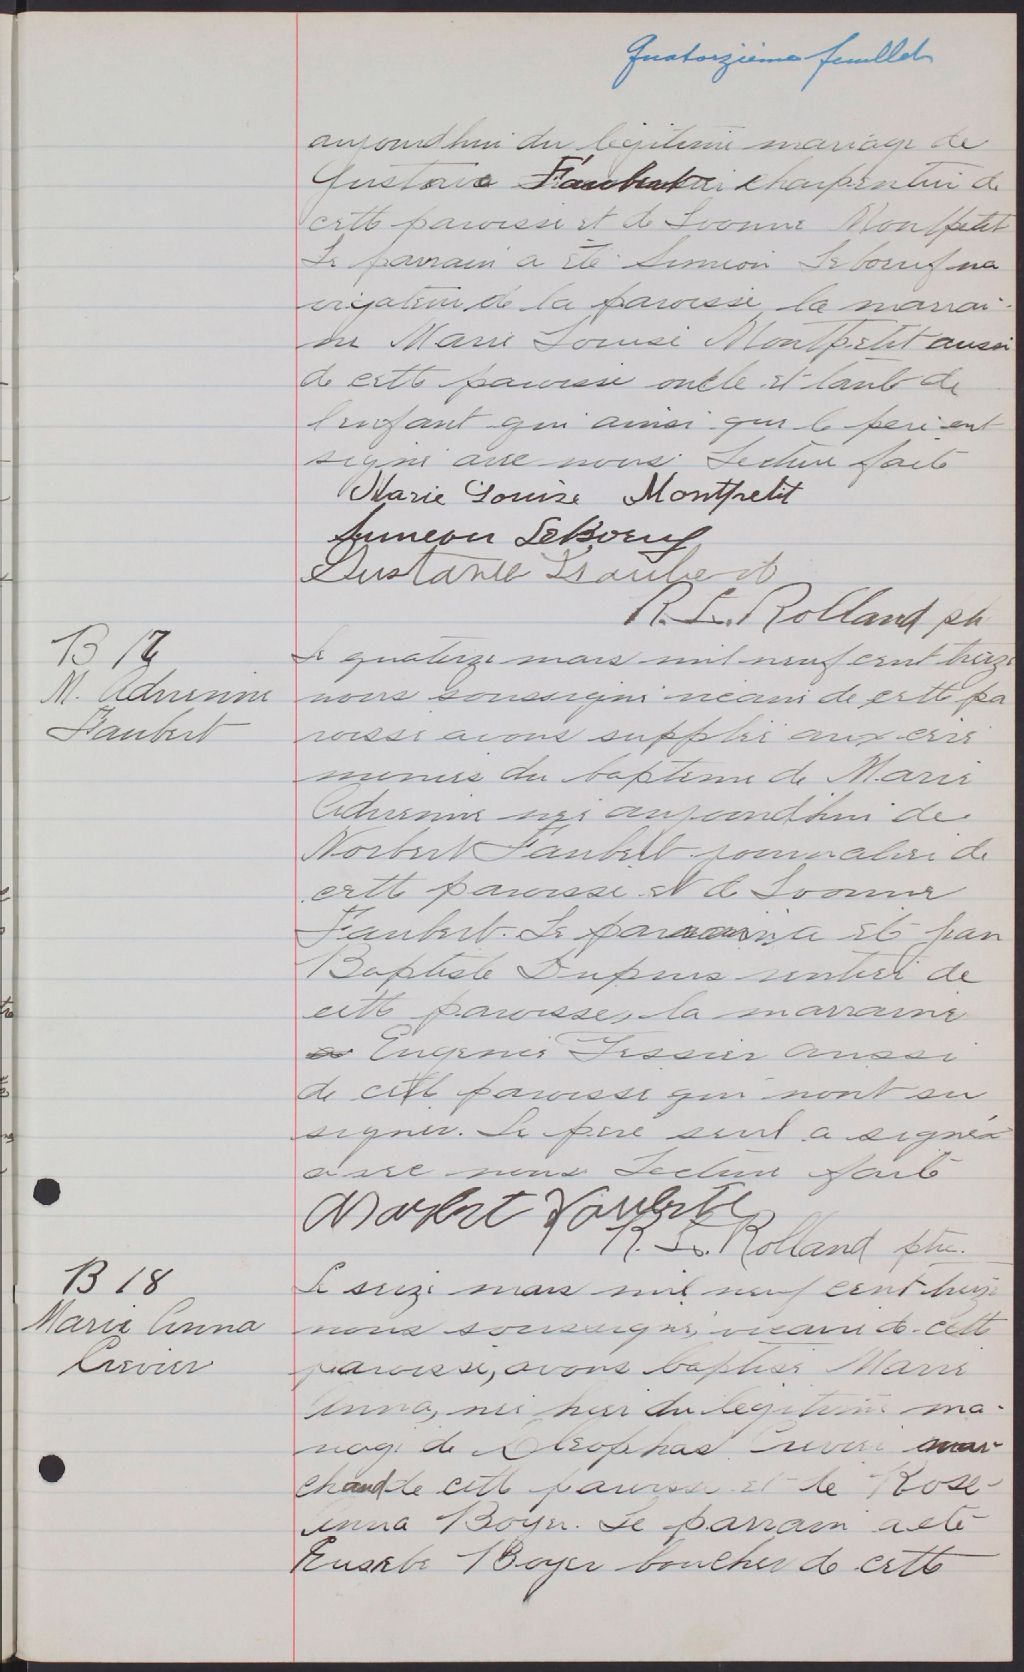 Quatorzième feuillet
aujourdhui du légitime mariage de
Gustave Faubert charpentier de
cette paroisse et de Ivonne Montpetit
Le parrain a été Simeon Leboeuf na
vigateur de la paroisse la marrai-
ne Marie Louise Montpetit aussi
de cette paroisse oncle et tante de
l'enfant qui ainsi que le père ont
signé avec nous. Lecture faite
Marie Louise Montpetit
Simeon LeBoeuf
Gustave Faubert
R. L. Rolland ptr
B 17
M. Adrienne
Faubert
Le quatorze mars mil neuf cent treize
nous soussigné vicaire de cette pa
roisse avons supplée aux céré
monies du baptême de Marie
Adrienne née aujourdhui de
Norbert Faubert journalier de
cette paroisse et de Ivonne
Faubert. Le parrain a été Jean
Baptiste Dupuis rentier de
cette paroisse, la marraine
Eugenie Tessier aussi
de cette paroisse qui n'ont su
signer. Le père seul a signé
avec nous Lecture faite
Norbert Fauberte
R. L. Rolland ptre.
B 18
Marie Anna
Crevier
Le seize mars mil neuf cent treize
nous soussigné, vicaire de cette
paroisse, avons baptisé Marie
Anna, née hier du légitime ma-
riage de Cleophas Crevier mar-
chand de cette paroisse et de Rose-
Anna Boyer. Le parrain a été
Eusebe Boyer boucher de cette